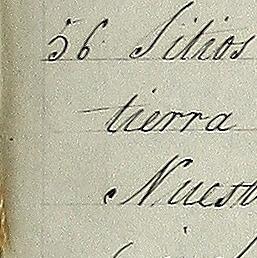 56 Sitios
tierra
Nuest